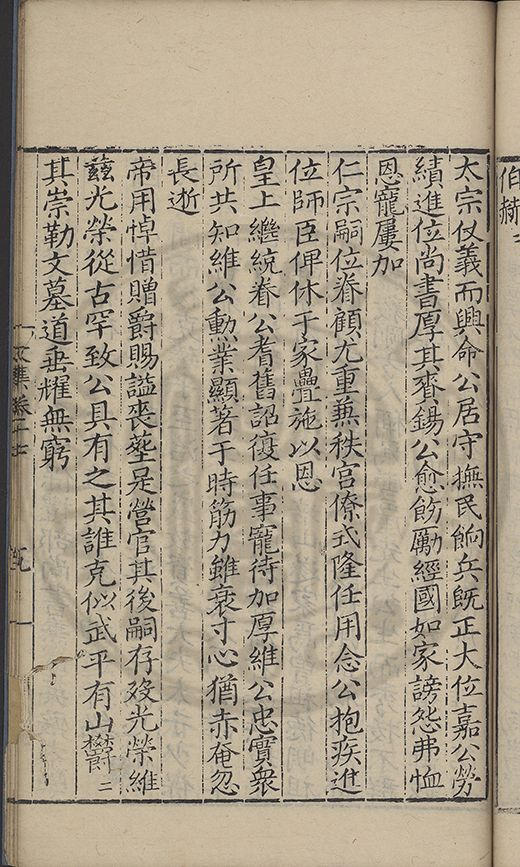 太宗仗義而興命公居守撫民餉兵旣正大位嘉公勞
績進位尚書厚其賚錫公愈飭勵經國如家謗怨弗恤
恩寵屢加
仁宗嗣位眷顧尤重蒹秩宫僚式隆任用念公抱疾進
位師臣俾休于家疊施以恩
皇上繼統眷公耆舊詔復任事寵待加厚維公忠實衆
所共知維公勳業顯著于時筋力雖衰寸心猶赤奄忽
長逝
帝用悼惜贈爵賜謚丧塟是營官其後嗣存歿光榮維
兹光榮從古罕致公具有之其誰克似武平有山欝二
其崇勒文墓道垂耀無窮
伯赫